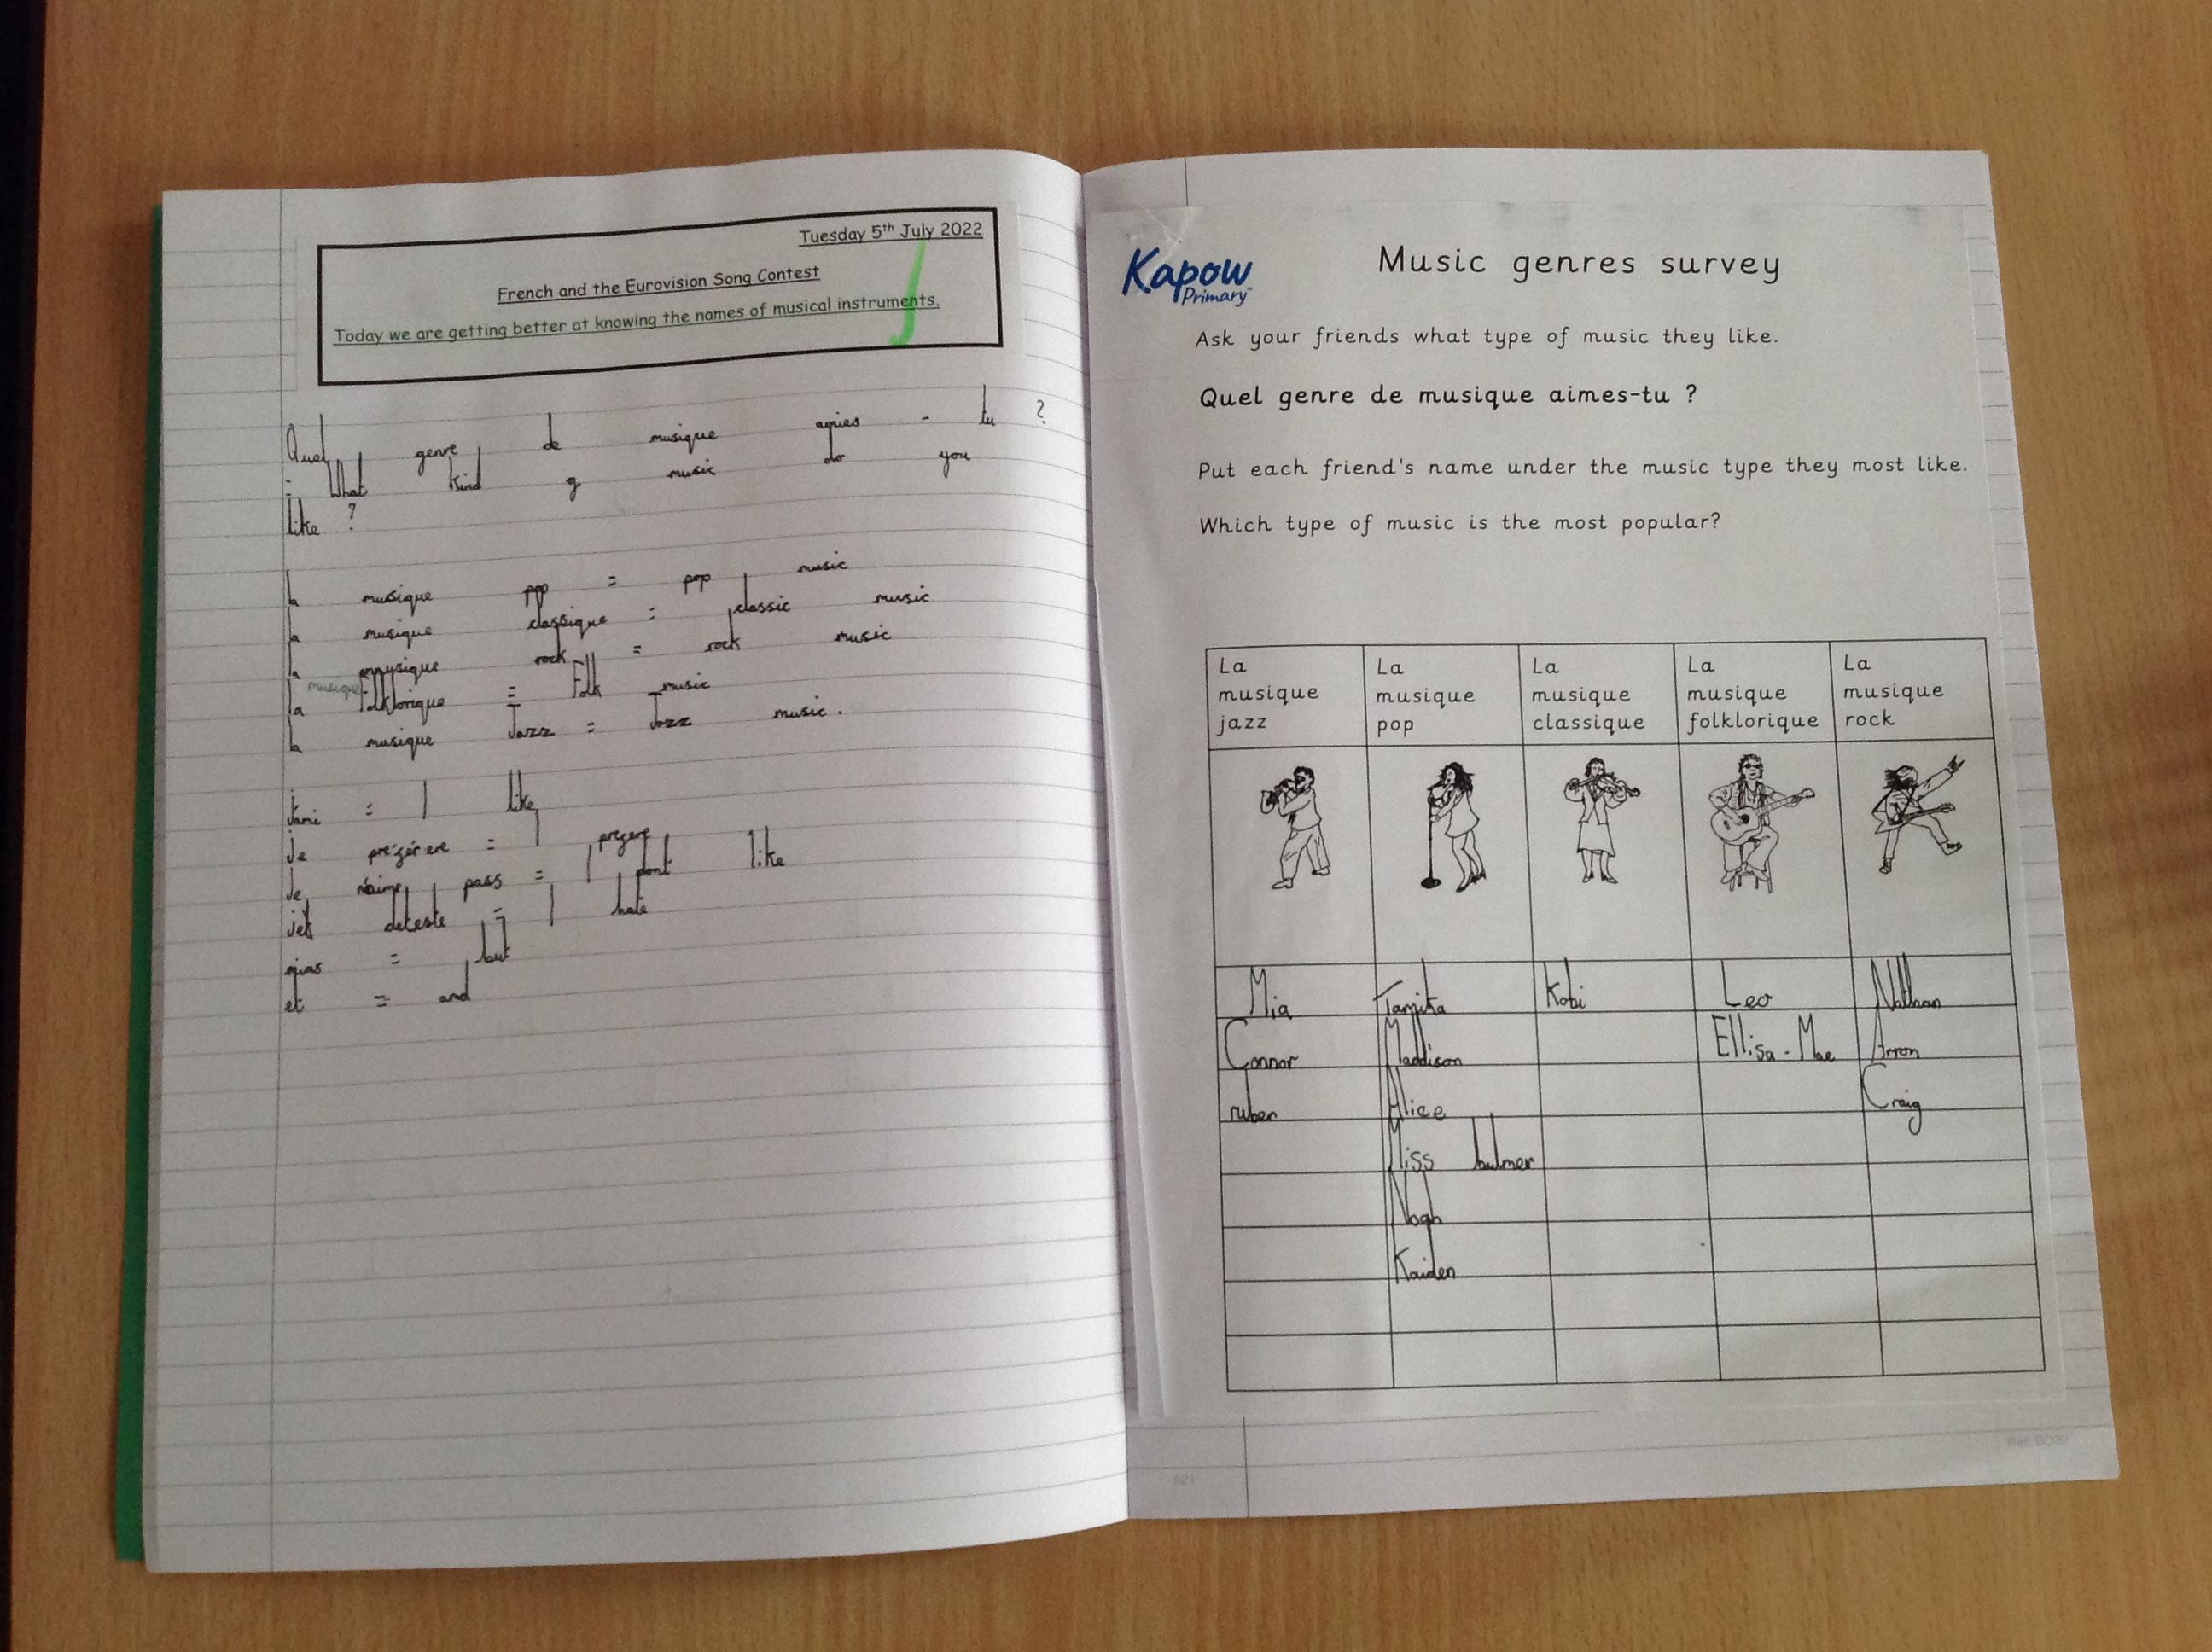 Tuesday 5th July 2022
French and the Eurovision Song Contest
Today we are getting better at knowing the names of musical instruments.
Quel genre de musique - tu ?
= What kind of music do you
like ?
la musique pop = pop music
la musique classique = classic music
la musique rock = rock music
la musique Folklorique = Folk music
la musique Jazz = Jazz music.
= I like
Je = I
Je n'aime pass = I dont like
deteste = I hate
= but
et = and
Kapow
Primary
Music genres survey
Ask your friends what type of music they like.
Quel genre de musique aimes-tu ?
Put each friend's name under the music type they most like.
Which type of music is the most popular?
La musique jazz
La musique pop
La musique classique
La musique folklorique
La musique rock
Mia Tamika Kobi Leo Nathan
Connor Maddison Ellisa-Mae Arron
ruben Alice Craig
Miss bulmer
Kaiden